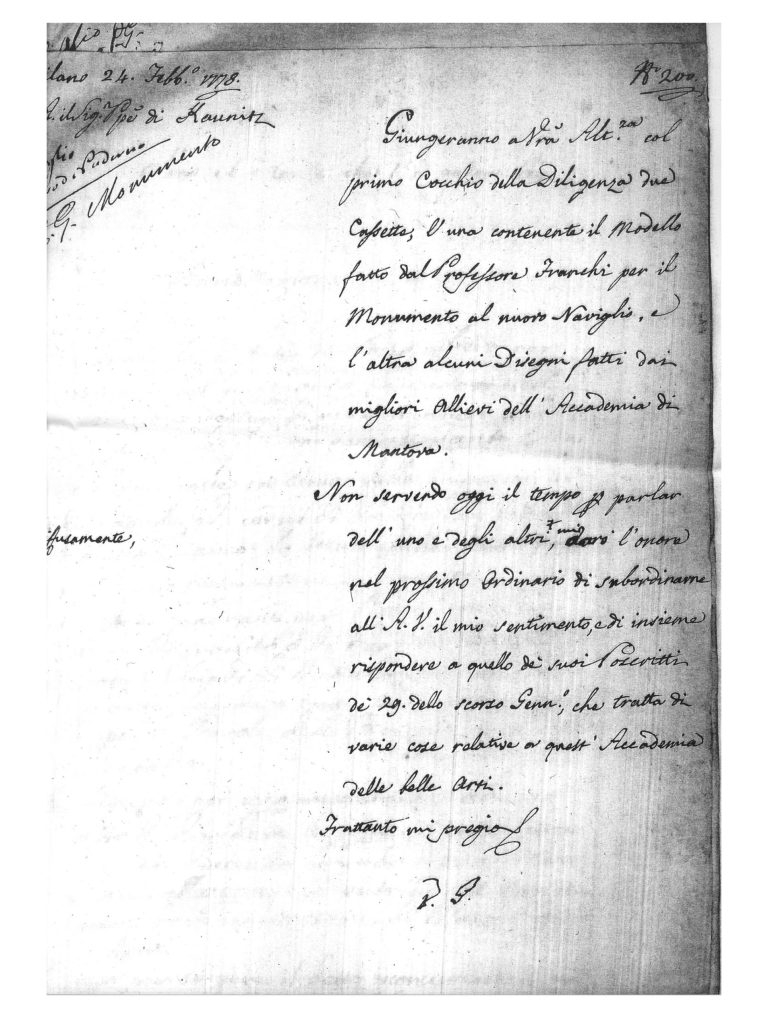 Milano 24. Febb.º 1778.
Nº 200.
il Sig. Ppe di Kaunitz
Naviglio di Paderno
Monumento
Giungeranno a Vrã Alt.za col
primo Cocchio della Diligenza due
Cassette, l'una contenente il Modello
fatto dal Professore Franchi per il
Monumento al nuovo Naviglio, e
l'altra alcuni Disegni fatti dai
migliori Allievi dell'Accademia di
Mantova.
Non servendo oggi il tempo p parlar
dell'uno e degli altri, † mi darò l'onore
ifusamente,
nel prossimo Ordinario di subordinarne
all'A.V. il mio sentimento, e di insieme
rispondere a quello de suoi Poscritti
de 29. dello scorso Genn.º, che tratta di
varie cose relative a quest'Accademia
delle belle Arti.
Frattanto mi pregio